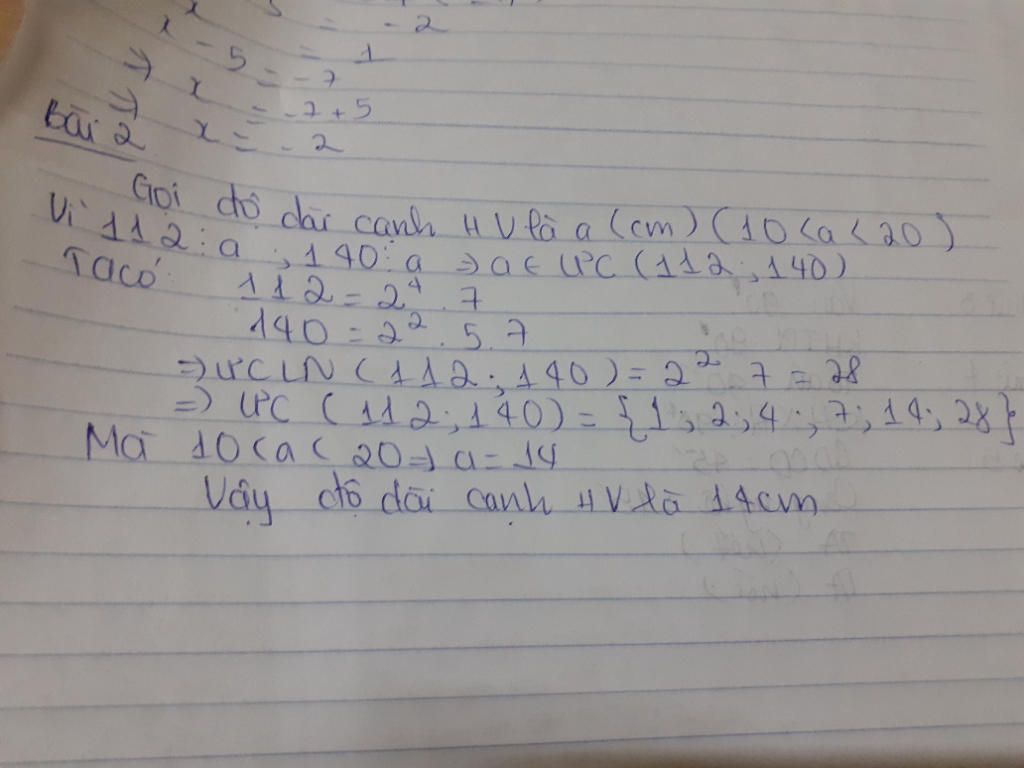 = - 2
x - 5 = 1
=> x = - 7
=> x = - 7 + 5
x = - 2
Bài 2
Gọi độ dài cạnh HV là a (cm) (10 < a < 20)
Vì 112 ⋮ a ; 140 ⋮ a => a ∈ ƯC (112 ; 140)
Ta có: 112 = 2⁴ . 7
140 = 2² . 5 . 7
=> ƯCLN (112 ; 140) = 2² 7 = 28
=> ƯC (112 ; 140) = {1 ; 2 ; 4 ; 7 ; 14 ; 28}
Mà 10 < a < 20 => a = 14
Vậy độ dài cạnh HV là 14cm